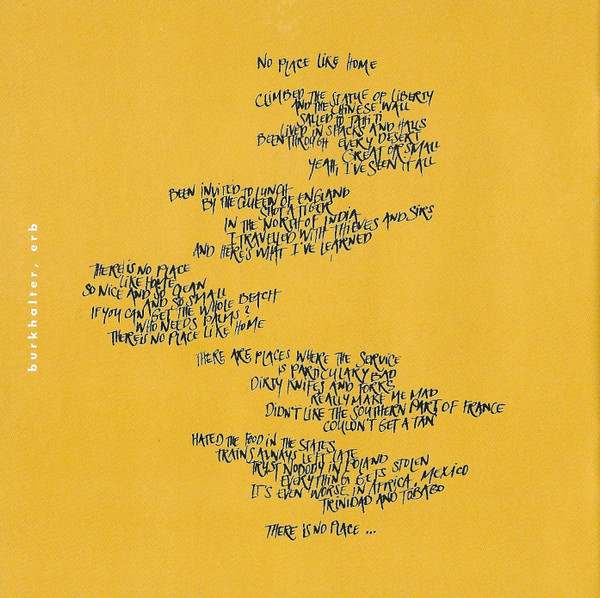 NO PLACE LIKE HOME
CLIMBED THE STATUE OF LIBERTY
AND THE CHINESE WALL
SAILED TO TAHITI
LIVED IN SHACKS AND HALLS
BEEN THROUGH EVERY DESERT
GREAT OR SMALL
YEAH, I'VE SEEN IT ALL
BEEN INVITED TO LUNCH
BY THE QUEEN OF ENGLAND
SHOT A TIGER
IN THE NORTH OF INDIA
I TRAVELLED WITH THIEVES AND SIRS
AND HERE'S WHAT I'VE LEARNED
THERE IS NO PLACE
LIKE HOME
SO NICE AND SO CLEAN
AND SO SMALL
IF YOU CAN GET THE WHOLE BEACH
WHO NEEDS PALMS?
THERE IS NO PLACE LIKE HOME
THERE ARE PLACES WHERE THE SERVICE
IS PARTICULARY BAD
DIRTY KNIFES AND FORKS
REALLY MAKE ME MAD
DIDN'T LIKE THE SOUTHERN PART OF FRANCE
COULDN'T GET A TAN
HATED THE FOOD IN THE STATES
TRAINS ALWAYS LEFT LATE
TRUST NOBODY IN POLAND
EVERYTHING GETS STOLEN
IT'S EVEN WORSE IN AFRICA, MEXICO
TRINIDAD AND TOBAGO
THERE IS NO PLACE ...
burkhalter, erb